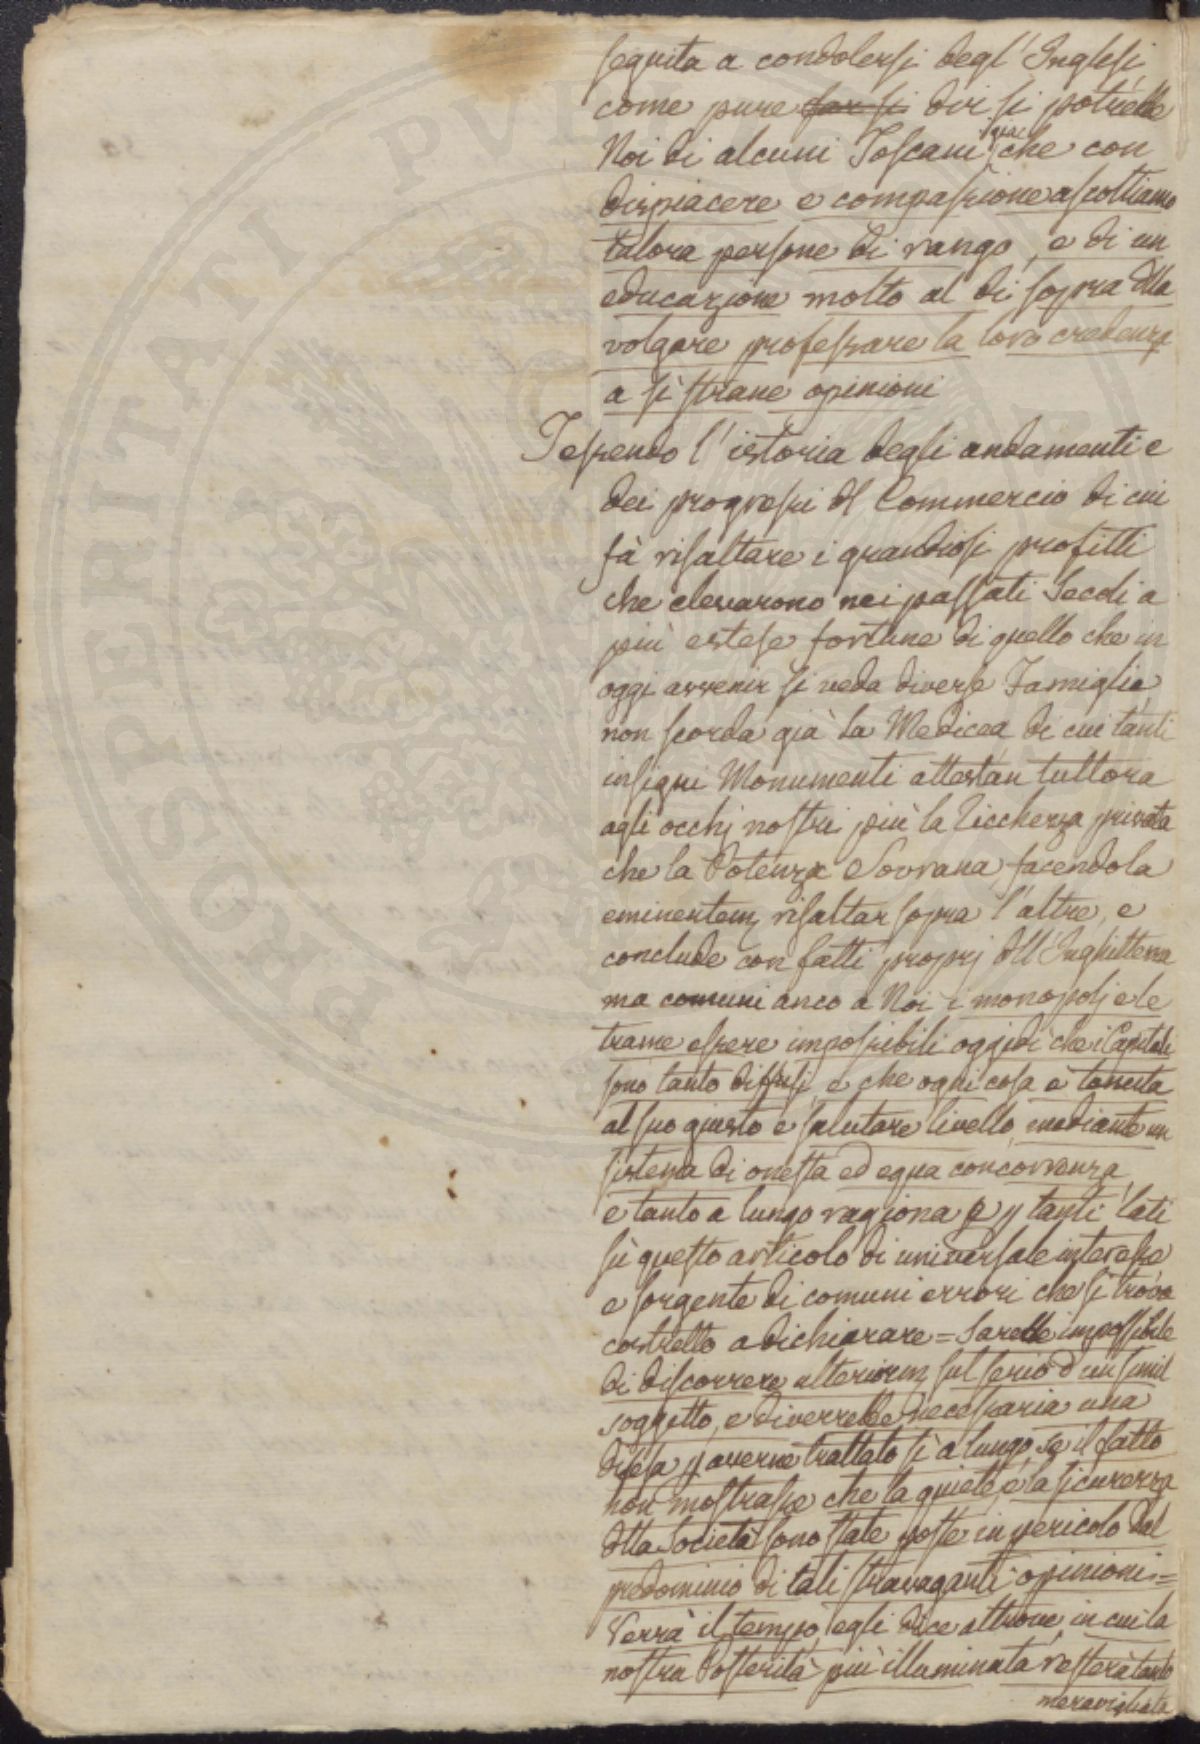 seguita a condolersi degl'Inglesi
come pure far si dir si potrebbe
Noi di alcuni Toscani che con
dispiacere e compassione ascoltiamo
talora persone di rango, e di un
educazione molto al di sopra dlla
volgare professare la loro credenza
a sì strane opinioni
Tessendo l'istoria degli andamenti e
dei progressi dl Commercio di cui
fà risaltare i grandiosi profitti
che elevarono nei passati Secoli a
più estese fortune di quello che in
oggi avvenir si veda diverse Famiglie
non scorda già la Medicea di cui tanti
insigni Monumenti attestan tuttora
agli occhj nostri più la Ricchezza privata
che la Potenza Sovrana, facendola
eminentem risaltar sopra l'altre, e
conclude con fatti proprj dll'Inghilterra
ma comuni anco a Noi i monopolj e le
trame essere impossibili oggidì che i Capitali
sono tanto diffusi, e che ogni cosa è tenuta
al suo giusto e salutare livello mediante un
sistema di onesta ed equa concorrenza
e tanto a lungo ragiona p tanti lati
sù questo articolo di universale interesse
e sorgente di comuni errori che si trova
costretto a dichiarare = Sarebbe impossibile
di discorrere ulteriorm sul serio d'un simil
soggetto, e diverrebbe necessaria una
difesa p averne trattato sì a lungo, se il fatto
non mostrasse che la quiete, e la sicurezza
dlla Società sono state poste in pericolo dal
predominio di tali stravaganti opinioni =
Verrà il tempo, egli dice altrove, in cui la
nostra Posterità più illuminata resterà tanto
meravigliata
PROSPERITATI PVBLICAE